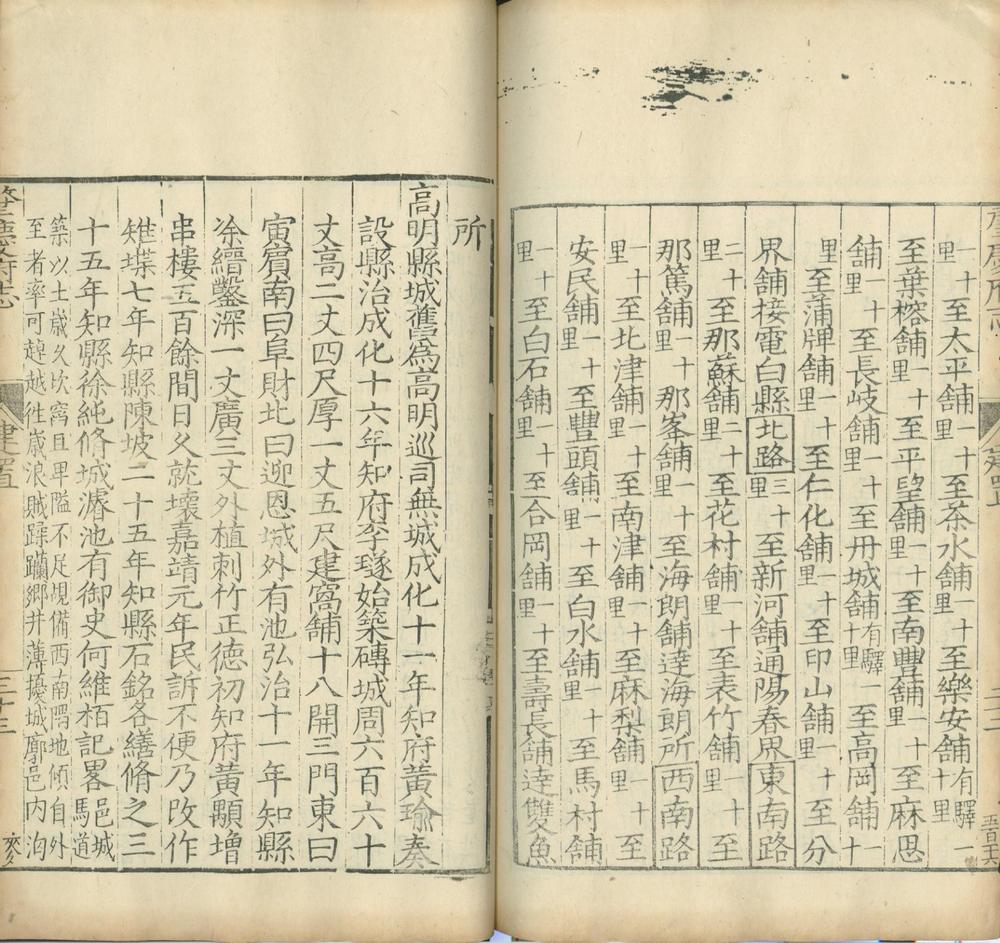 一十里至太平舖一十里至茶水舖一十里至樂安舖有驛一十里
至葉榕舖一十里至平望舖一十里至南豐舖一十里至麻思
舖一十里至長岐舖一十里至丹城舖有驛一十里至高岡舖一十
里至蒲牌舖一十里至仁化舖一十里至印山舖一十里至分
界舖接電白縣北路三十里至新河舖通陽春界東南路
二十里至那蘇舖二十里至花村舖一十里至表竹舖一十里至
那篤舖一十里那峯舖一十里至海朗舖達海朗所西南路
一十里至北津舖一十里至南津舖一十里至麻梨舖一十里至
安民舖一十里至豐頭舖一十里至白水舖一十里至馬村舖
一十里至白石舖一十里至合岡舖一十里至壽長舖達雙魚
所
高明縣城舊為高明巡司無城成化十一年知府黃瑜奏
設縣治成化十六年知府李璲始築磚城周六百六十
丈高二丈四尺厚一丈五尺建窩舖十八開三門東曰
寅賓南曰阜財北曰迎恩城外有池弘治十一年知縣
徐縉鑿深一丈廣三丈外植刺竹正德初知府黃顯增
串樓五百餘間日久就壞嘉靖元年民訴不便乃改作
雉堞七年知縣陳坡二十五年知縣石銘各繕脩之三
十五年知縣徐純脩城濬池有御史何維栢記畧邑城馬道
築以土歲久坎窞且卑隘不足規備西南隅地傾自外
至者率可趠越徃歲浪賊蹂躪鄉井薄擾城廓邑内沟
肇慶府志
建置
三十三